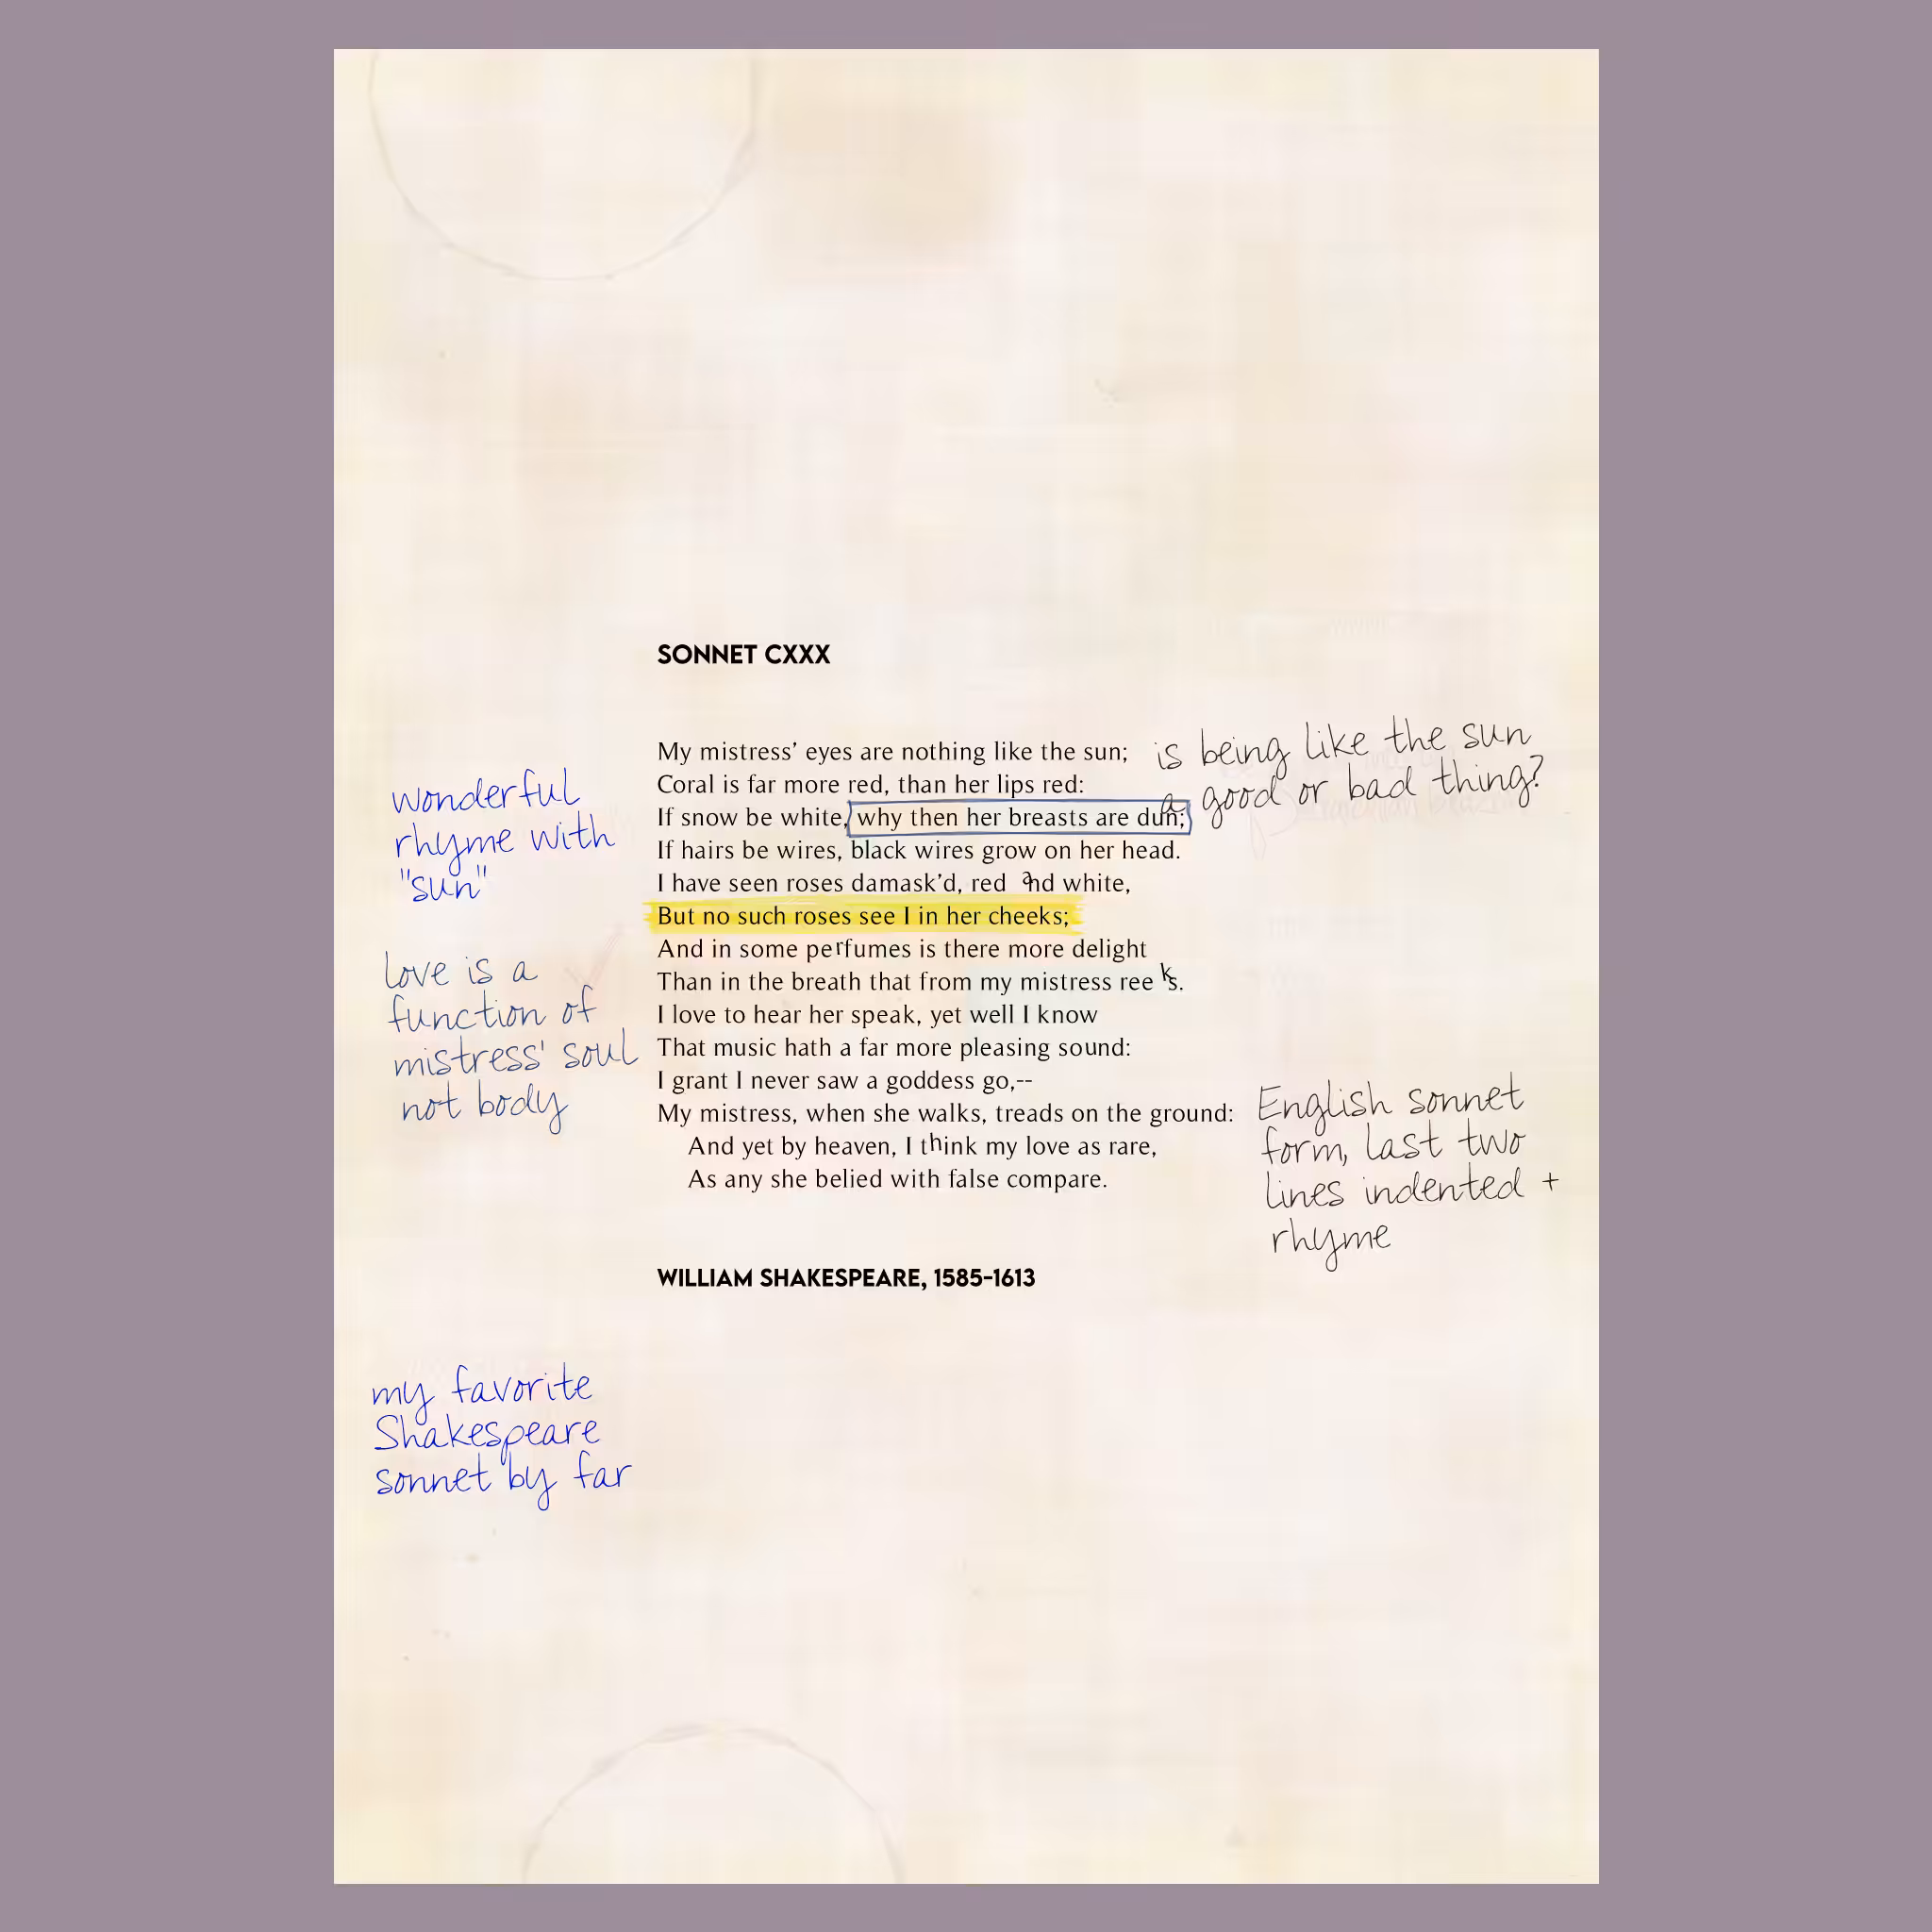 SONNET CXXX
My mistress’ eyes are nothing like the sun;
Coral is far more red, than her lips red:
If snow be white, why then her breasts are dun;
If hairs be wires, black wires grow on her head.
I have seen roses damask’d, red and white,
But no such roses see I in her cheeks;
And in some perfumes is there more delight
Than in the breath that from my mistress reeks.
I love to hear her speak, yet well I know
That music hath a far more pleasing sound:
I grant I never saw a goddess go,--
My mistress, when she walks, treads on the ground:
And yet by heaven, I think my love as rare,
As any she belied with false compare.
WILLIAM SHAKESPEARE, 1585-1613
is being like the sun
a good or bad thing?
wonderful
rhyme with
"sun"
love is a
function of
mistress' soul
not body
English sonnet
form, last two
lines indented +
rhyme
my favorite
Shakespeare
sonnet by far